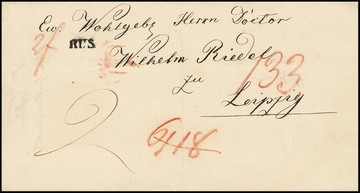 Ew. Wohlgeb. Herrn Doctor
RUS.
Wilhelm Riedel
zu
Leipzig
133
2